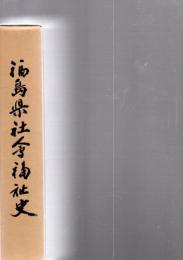 福島県社会福祉史